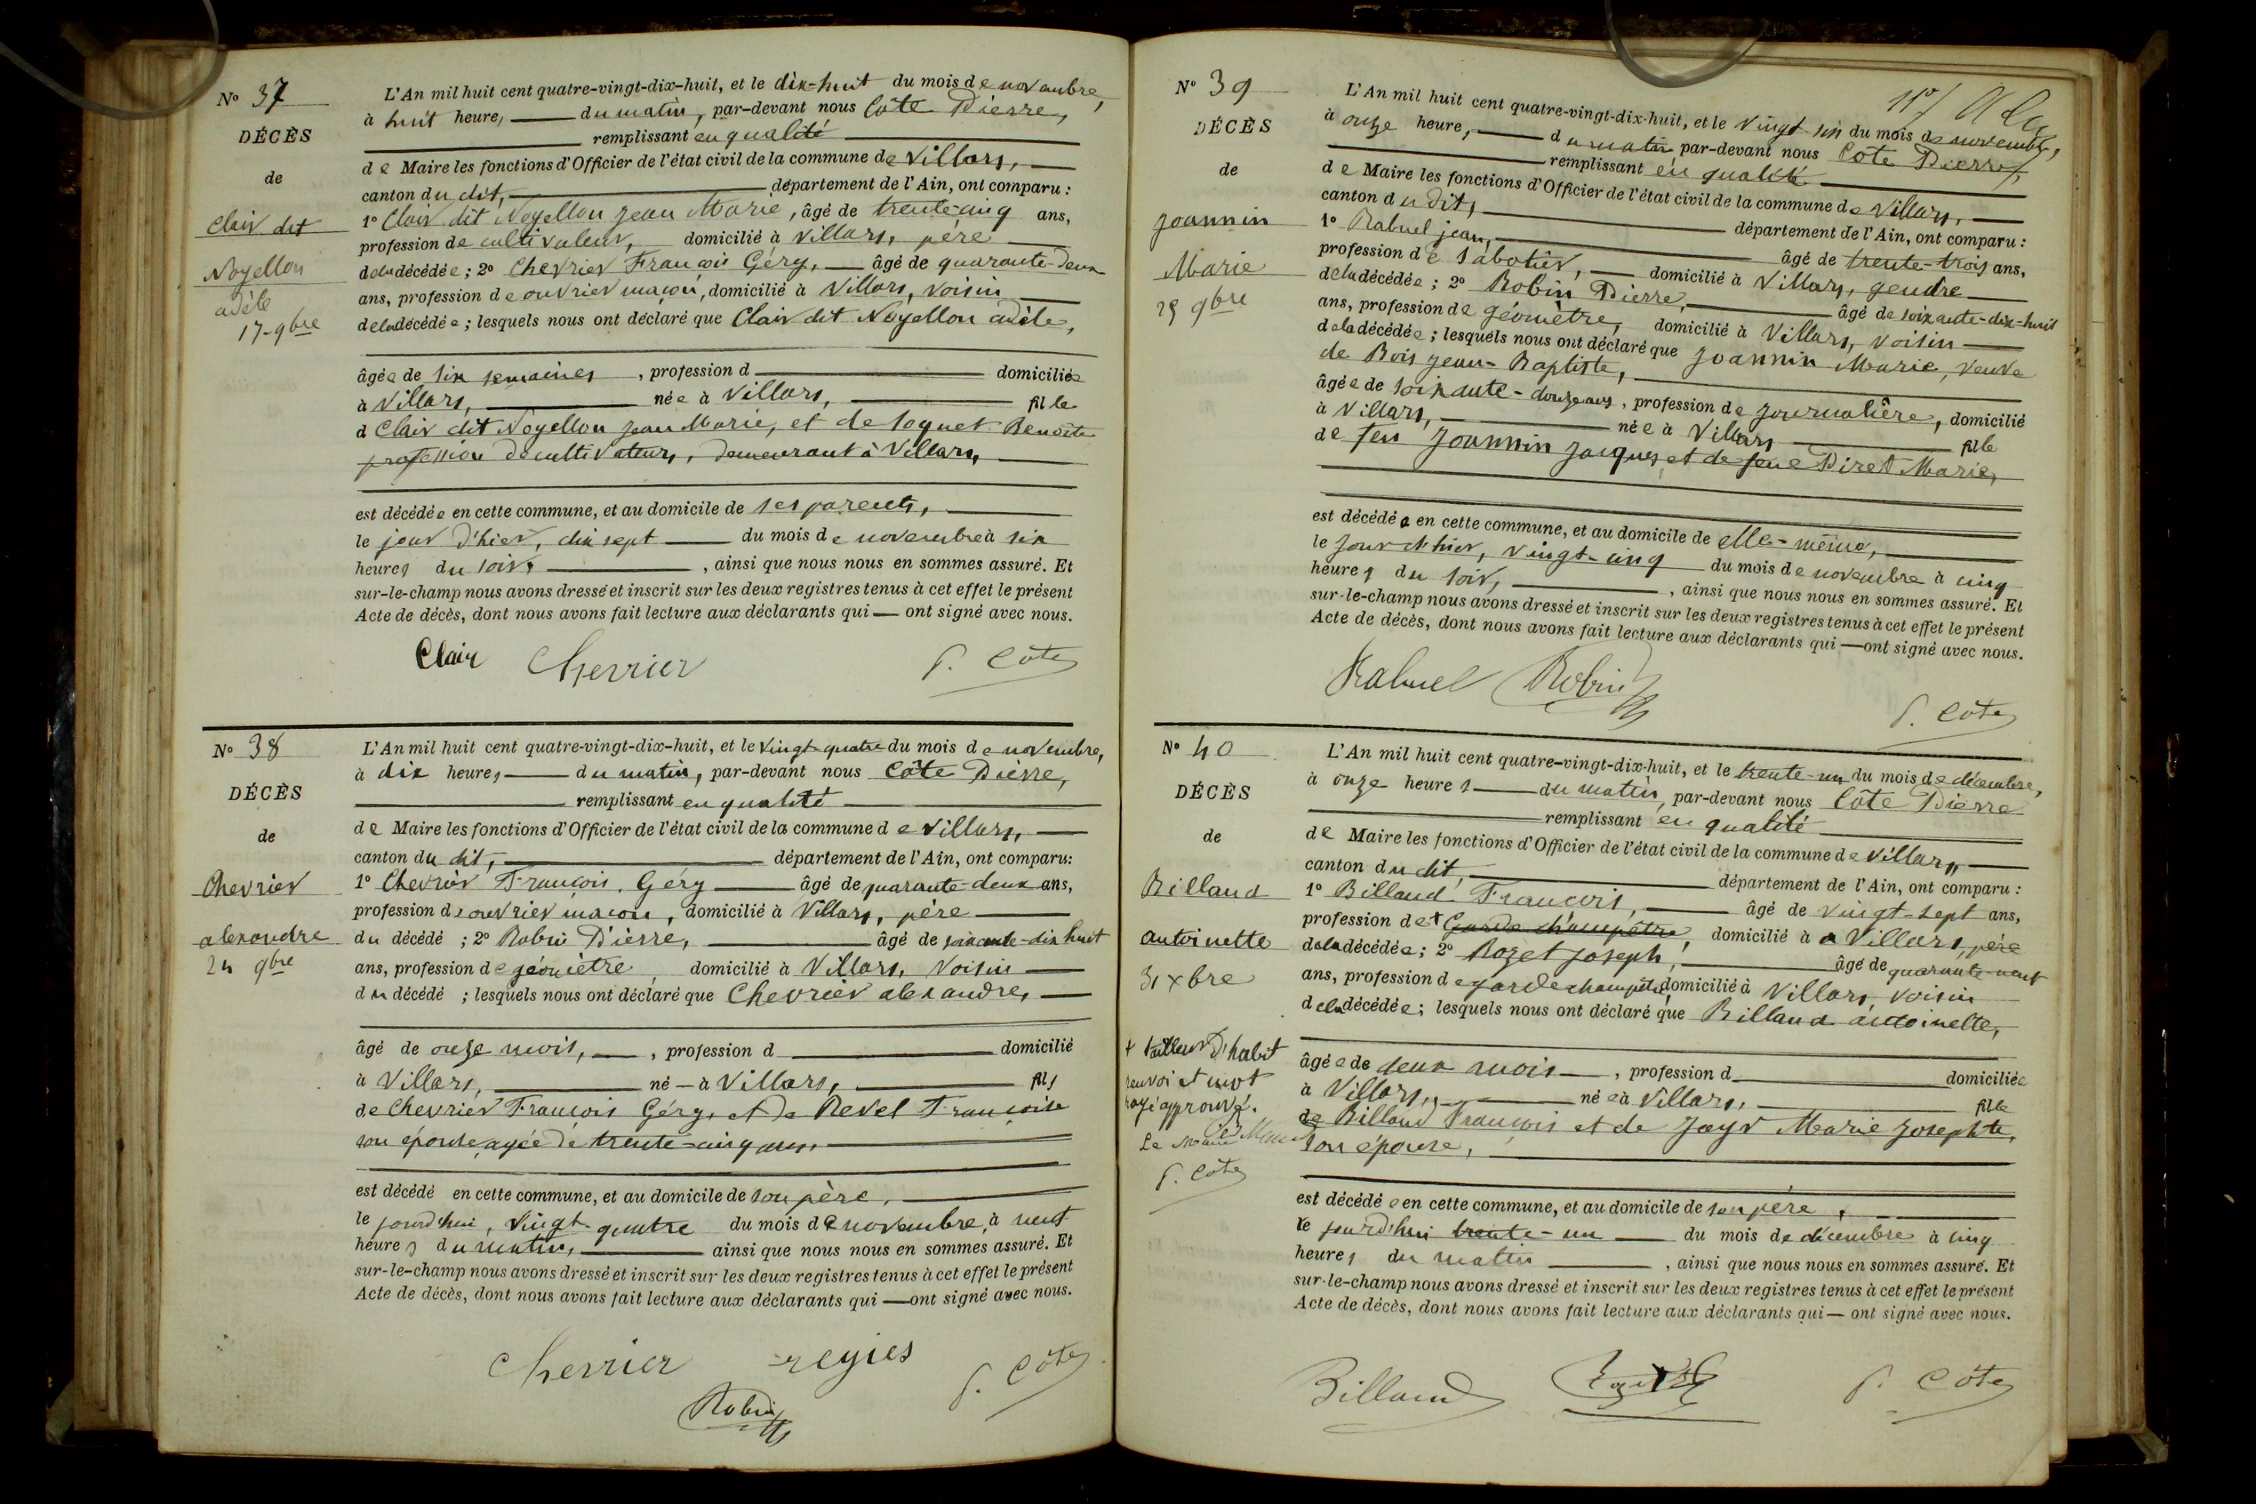 N° 37
DÉCÈS
de
Clair dit
Noyellon
adèle
17-9bre
L'An mil huit cent quatre-vingt-dix-huit, et le dix-huit du mois de novembre,
à huit heures, du matin, par-devant nous Côte Pierre,
remplissant en qualité
de Maire les fonctions d'Officier de l'état civil de la commune de Villars,
canton du dit, département de l'Ain, ont comparu :
1° Clair dit Noyellon Jean Marie, âgé de trente-cinq ans,
profession de cultivateur, domicilié à Villars, père
de la décédée ; 2° Chevrier François Géry, âgé de quarante-deux
ans, profession de ouvrier maçon, domicilié à Villars, voisin
de la décédée ; lesquels nous ont déclaré que Clair dit Noyellon adèle,
âgée de six semaines, profession d domiciliée
à Villars, née à Villars, fille
d Clair dit Noyellon Jean Marie, et de Soquet Benoîte
profession de cultivateurs, demeurant à Villars,
est décédée en cette commune, et au domicile de ses parents,
le jour d'hier, dix sept du mois de novembre à six
heures du soir, ainsi que nous nous en sommes assuré. Et
sur-le-champ nous avons dressé et inscrit sur les deux registres tenus à cet effet le présent
Acte de décès, dont nous avons fait lecture aux déclarants qui — ont signé avec nous.
Clair Cherrier P. Côte
N° 38
DÉCÈS
de
Chevrier
alexandre
24 9bre
L'An mil huit cent quatre-vingt-dix-huit, et le vingt-quatre du mois de novembre,
à dix heures, du matin, par-devant nous Côte Pierre,
remplissant en qualité
de Maire les fonctions d'Officier de l'état civil de la commune de Villars,
canton du dit, département de l'Ain, ont comparu:
1° Chevrier François Géry âgé de quarante-deux ans,
profession de ouvrier maçon, domicilié à Villars, père
du décédé ; 2° Robin Pierre, âgé de soixante-dix huit
ans, profession de géomètre, domicilié à Villars, voisin
du décédé ; lesquels nous ont déclaré que Chevrier alexandre,
âgé de onze mois, , profession d domicilié
à Villars, né — à Villars, fils
de Chevrier François Géry, et de Revel Françoise
son épouse, agée de trente-cinq ans,
est décédé en cette commune, et au domicile de son père,
le jourd'hui, vingt-quatre du mois de novembre, à neuf
heures du matin, ainsi que nous nous en sommes assuré. Et
sur-le-champ nous avons dressé et inscrit sur les deux registres tenus à cet effet le présent
Acte de décès, dont nous avons fait lecture aux déclarants qui — ont signé avec nous.
Cherrier regies P. Côte
Robin
N° 39
DÉCÈS
de
Joannin
Marie
25 9bre
L'An mil huit cent quatre-vingt-dix-huit, et le vingt-six du mois de novembre,
à onze heures, du matin par-devant nous Côte Pierre,
remplissant en qualité
de Maire les fonctions d'Officier de l'état civil de la commune de Villars,
canton du dit, département de l'Ain, ont comparu :
1° Rabuel Jean, âgé de trente-trois ans,
profession de sabotier, domicilié à Villars, gendre
de la décédée ; 2° Robin Pierre, âgé de soixante-dix-huit
ans, profession de géomètre, domicilié à Villars, voisin
de la décédée ; lesquels nous ont déclaré que Joannin Marie, veuve
de Bois Jean-Baptiste,
âgée de soixante-douze ans, profession de journalière, domicilié
à Villars, née à Villars fille
de feu Joannin Jacques et de feue Piret Marie,
est décédée en cette commune, et au domicile de elle-même,
le jour d'hier, vingt-cinq du mois de novembre à cinq
heures du soir, ainsi que nous nous en sommes assuré. Et
sur-le-champ nous avons dressé et inscrit sur les deux registres tenus à cet effet le présent
Acte de décès, dont nous avons fait lecture aux déclarants qui — ont signé avec nous.
Rabuel Robin
P. Côte
N° 40
DÉCÈS
de
Billaud
antoinette
31 xbre
+ tailleur d'habit
renvoi et mot
rayé approuvé.
Le Maire
P. Côte
L'An mil huit cent quatre-vingt-dix-huit, et le trente-un du mois de décembre,
à onze heures du matin, par-devant nous Côte Pierre
remplissant en qualité
de Maire les fonctions d'Officier de l'état civil de la commune de Villars,
canton du dit, département de l'Ain, ont comparu :
1° Billaud François, âgé de vingt-sept ans,
profession de + Garde champêtre, domicilié à Villars, père
de la décédée ; 2° Rozet Joseph, âgé de quarante-neuf
ans, profession de garde champêtre, domicilié à Villars, voisin
de la décédée ; lesquels nous ont déclaré que Billaud antoinette,
âgée de deux mois, profession d domiciliée
à Villars, née à Villars, fille
de Billaud François et de Jayr Marie Josephte,
son épouse,
est décédée en cette commune, et au domicile de son père,
le jourd'hui trente-un du mois de décembre à cinq
heures du matin, ainsi que nous nous en sommes assuré. Et
sur-le-champ nous avons dressé et inscrit sur les deux registres tenus à cet effet le présent
Acte de décès, dont nous avons fait lecture aux déclarants qui — ont signé avec nous.
Billaud P. Côte